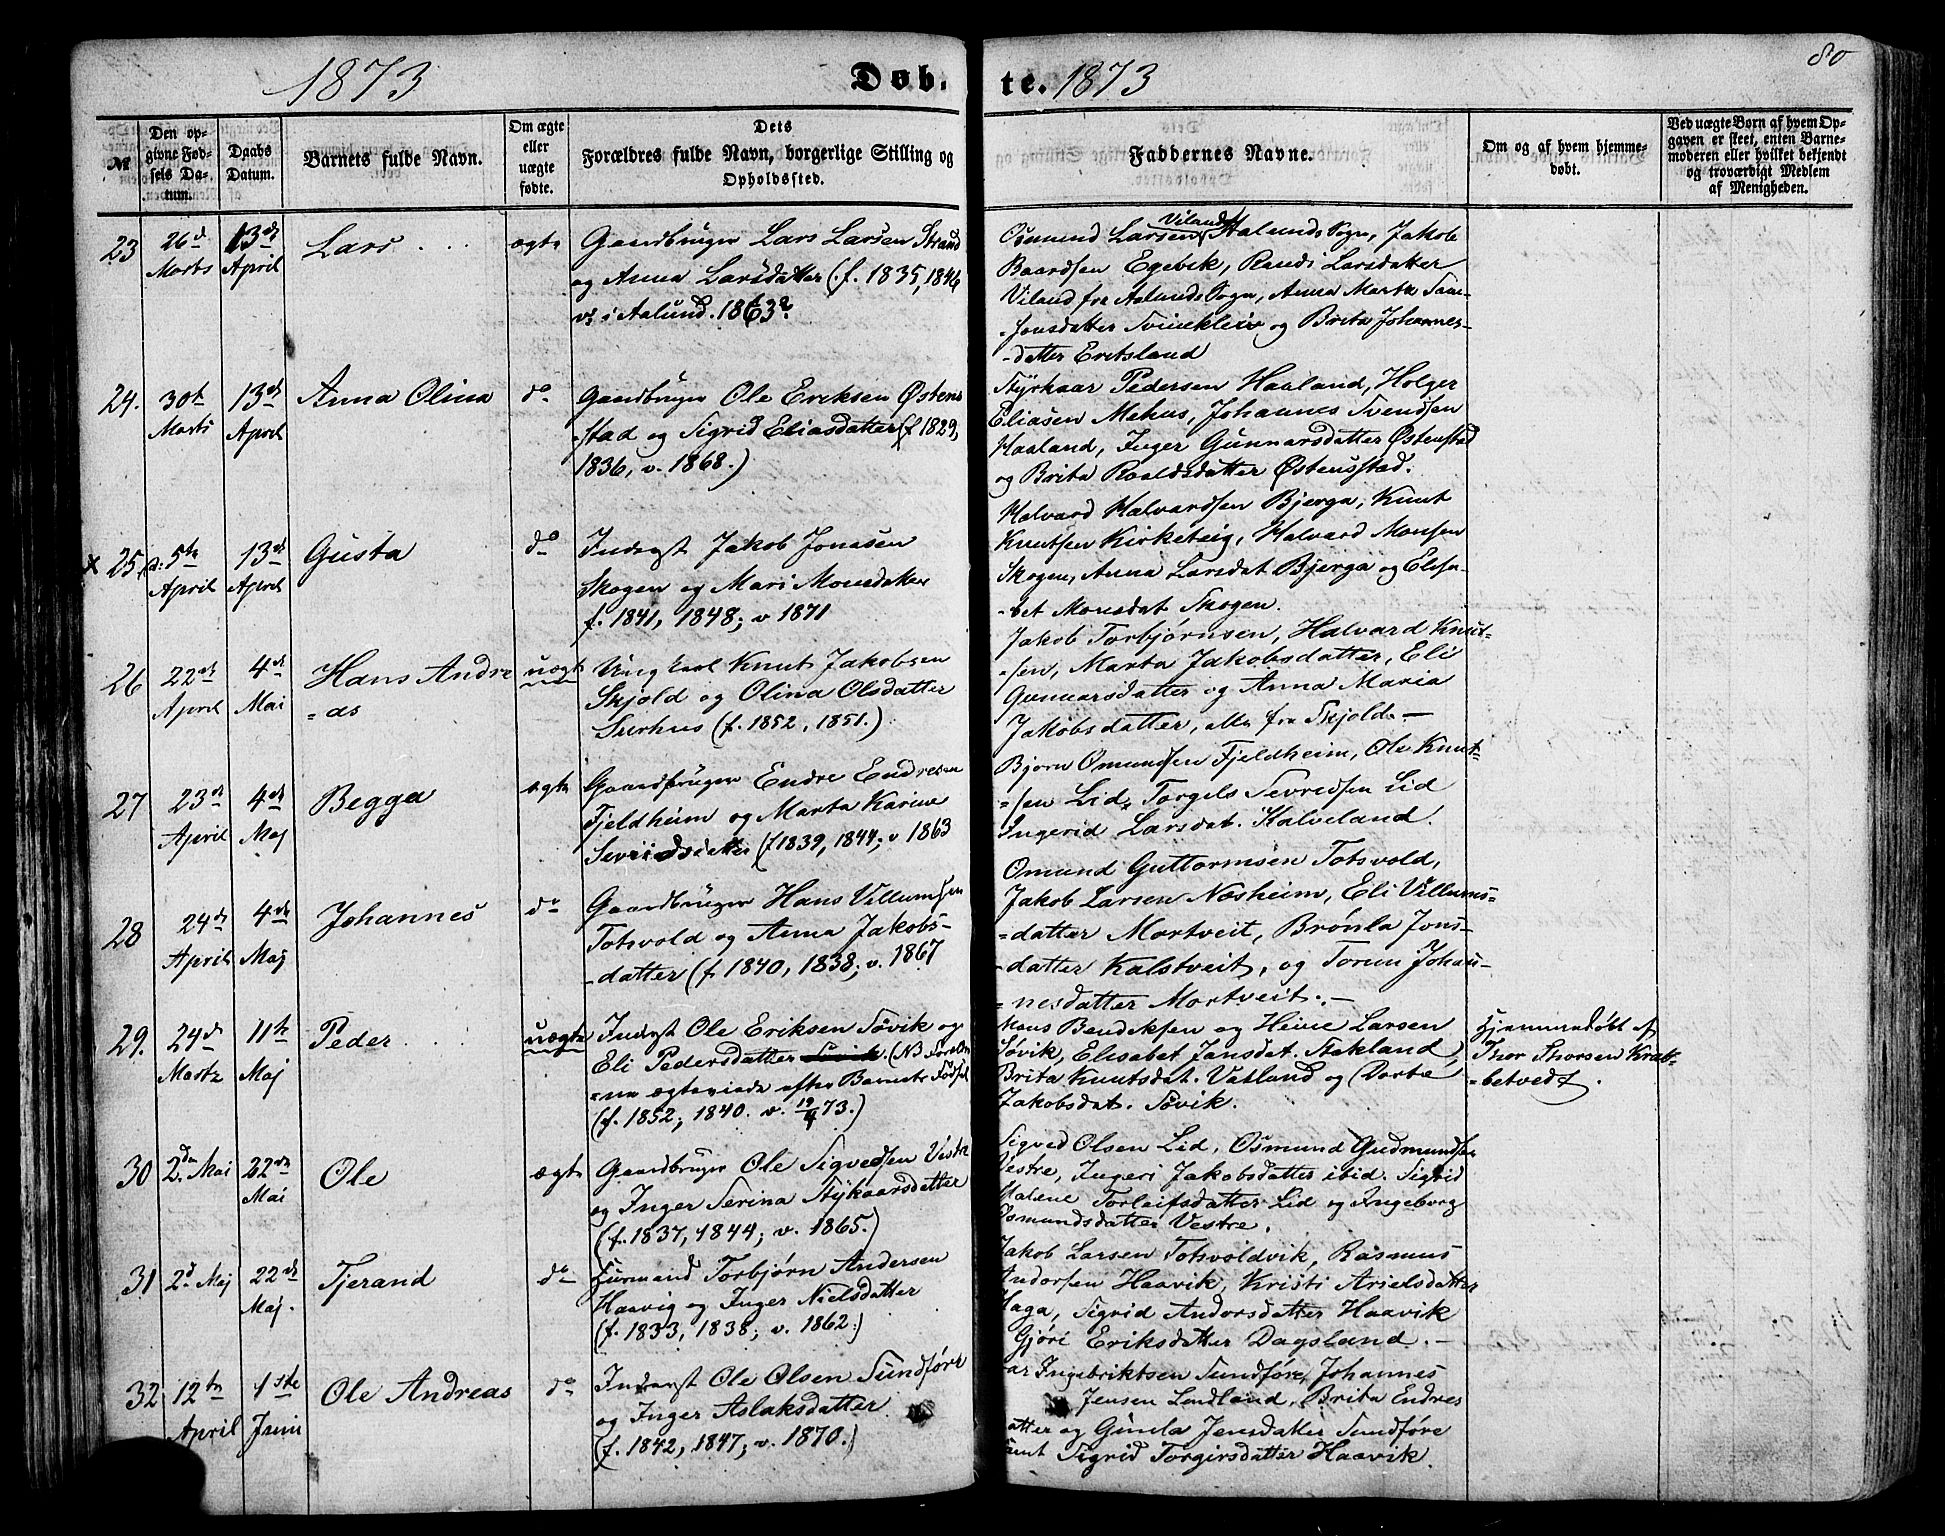 80
1873 Døb. te. 1873
№
Den op-
givne Fød-
sels Da-
tum.
Daabs
Datum.
Barnets fulde Navn.
Om ægte
eller
uægte
fødte.
Dets
Forældres fulde Navn, borgerlige Stilling og
Opholdssted.
Faddernes Navne.
Om og af hvem hjemme-
døbt.
Ved uægte Børn af hvem Op-
gaven er skeet, enten Barne-
moderen eller hvilket bekjendt
og troværdigt Medlem
af Menigheden.
23
26d
Marts
13de
April
Lars
ægte
Gaardbruger Lars Larsen Strand
og Anna Larsdatter (f. 1835, 1846
v. i Aalund. 1863?
Osmund Larsen Viland Aalunds Sogn, Jakob
Baardsen Egevik, Randi Larsdatter
Viland fra Aalunds Sogn, Anna Marta Sam-
-sonsdatter Svinekleiv og Brita Johannes-
-datter Eritsland
24.
30te
Marts
13de
April
Anna Olina
do
Gaardbruger Ole Eriksen Østens
-stad og Sigrid Eliasdatter (f 1829,
1836, v. 1868.)
Styrkaar Pedersen Haaland, Holger
Eliasen Mehus, Johannes Svendsen
Haaland, Inger Gunnarsdatter Østenstad
og Brita Roaldsdatter Østensstad.
x 25.
d: 5te
April
13de
April
Gusta
do
Inderst Jakob Jonasen
Skogen og Mari Monsdatter
f. 1841, 1848; v 1871
Halvard Halvardsen Bjerga, Knut
Knutsen Kirketeig, Halvard Monsen
Skogen, Anna Larsdat Bjerga og Elisa-
-bet Monsdat Skogen.
26
22de
April
4de
Mai
Hans Andre
=as
uægte
Ung karl Knut Jakobsen
Skjold og Olina Olsdatter
Surhus (f. 1852, 1851.)
Jakob Torbjørnsen, Halvard Knut-
-sen, Marta Jakobsdatter, Eli
Gunnarsdatter og Anna Maria
Jakobsdatter, alle fra Skjold. —
27
23de
April
4de
Maj
Begga
ægte
Gaardbruger Endre Endresen
Fjeldheim og Marta Karine
Sevriedsdatter (f 1839, 1844; v 1863
Bjørn Omundsen Fjeldheim, Ole Knut-
=sen Lid, Torgels Sevredsen Lid
Ingerid Larsdat. Halveland.
28
24de
April
4de
Maj
Johannes
do
Gaardbruger Hans Villumsen
Totsvold og Anna Jakobs-
-datter (f. 1840, 1838; v. 1867
Omund Guttormsen Totsvold,
Jakob Larsen Næsheim, Eli Villums-
=datter Mortveit, Brønla Jons-
-datter Kalstveit, og Torun Johan-
=nesdatter Mortveit. —
29.
24de
Marts
11te
Maj
Peder
uægte
Inderst Ole Eriksen Søvik og
Eli Pedersdatter Søvik. (NB Foræl
=ne ægteviede efter Barnets Fødsel
(f. 1852; 1840. v. 19/4 73.)
Mons Bendiksen og Heine Larsen
Søvik, Elisabet Jansdat. Stakland,
Brita Knutsdat. Vatland og Dorte
Jakobsdat. Søvik.
Hjemmedøbt af
Thor Thorsen Krab-
-betvedt.
30
2den Mai
22de
Mai
Ole
ægte
Gaardbruger Ole Sigvedsen Vestre
og Inger Serina Stykaarsdatter
(f. 1837, 1844; v. 1865.)
Sigved Olsen Lid, Osmund Gudmundsen
Vestre, Ingeri Jakobsdatter ibid. Sigrid
Malene Torleifsdatter Lid og Ingeborg
Osmundsdatter Vestre.
31
2d Maj
22de
Maj.
Tjerand
do
Huusmand Torbjørn Andersen
Haavig og Inger Nielsdatter
(f. 1833, 1838; v. 1862.)
Jakob Larsen Totsvoldvik, Rasmus
Andorsen Haavik, Kristi Arielsdatter
Haga, Sigrid Andorsdatter Haavik
Gjøri Eriksdatter Dagsland. —
32
12te
April
1ste
Juni
Ole Andreas
do
Inderst Ole Olsen Sundføre
og Inger Aslaksdatter
(f. 1842, 1847; v. 1870.)
Ingebriktsen Sundføre, Johannes
Jensen Lindland, Brita Endres
atter og Gunla Jensdatter Sundføre
samt Sigrid Torgirsdatter Haavik.